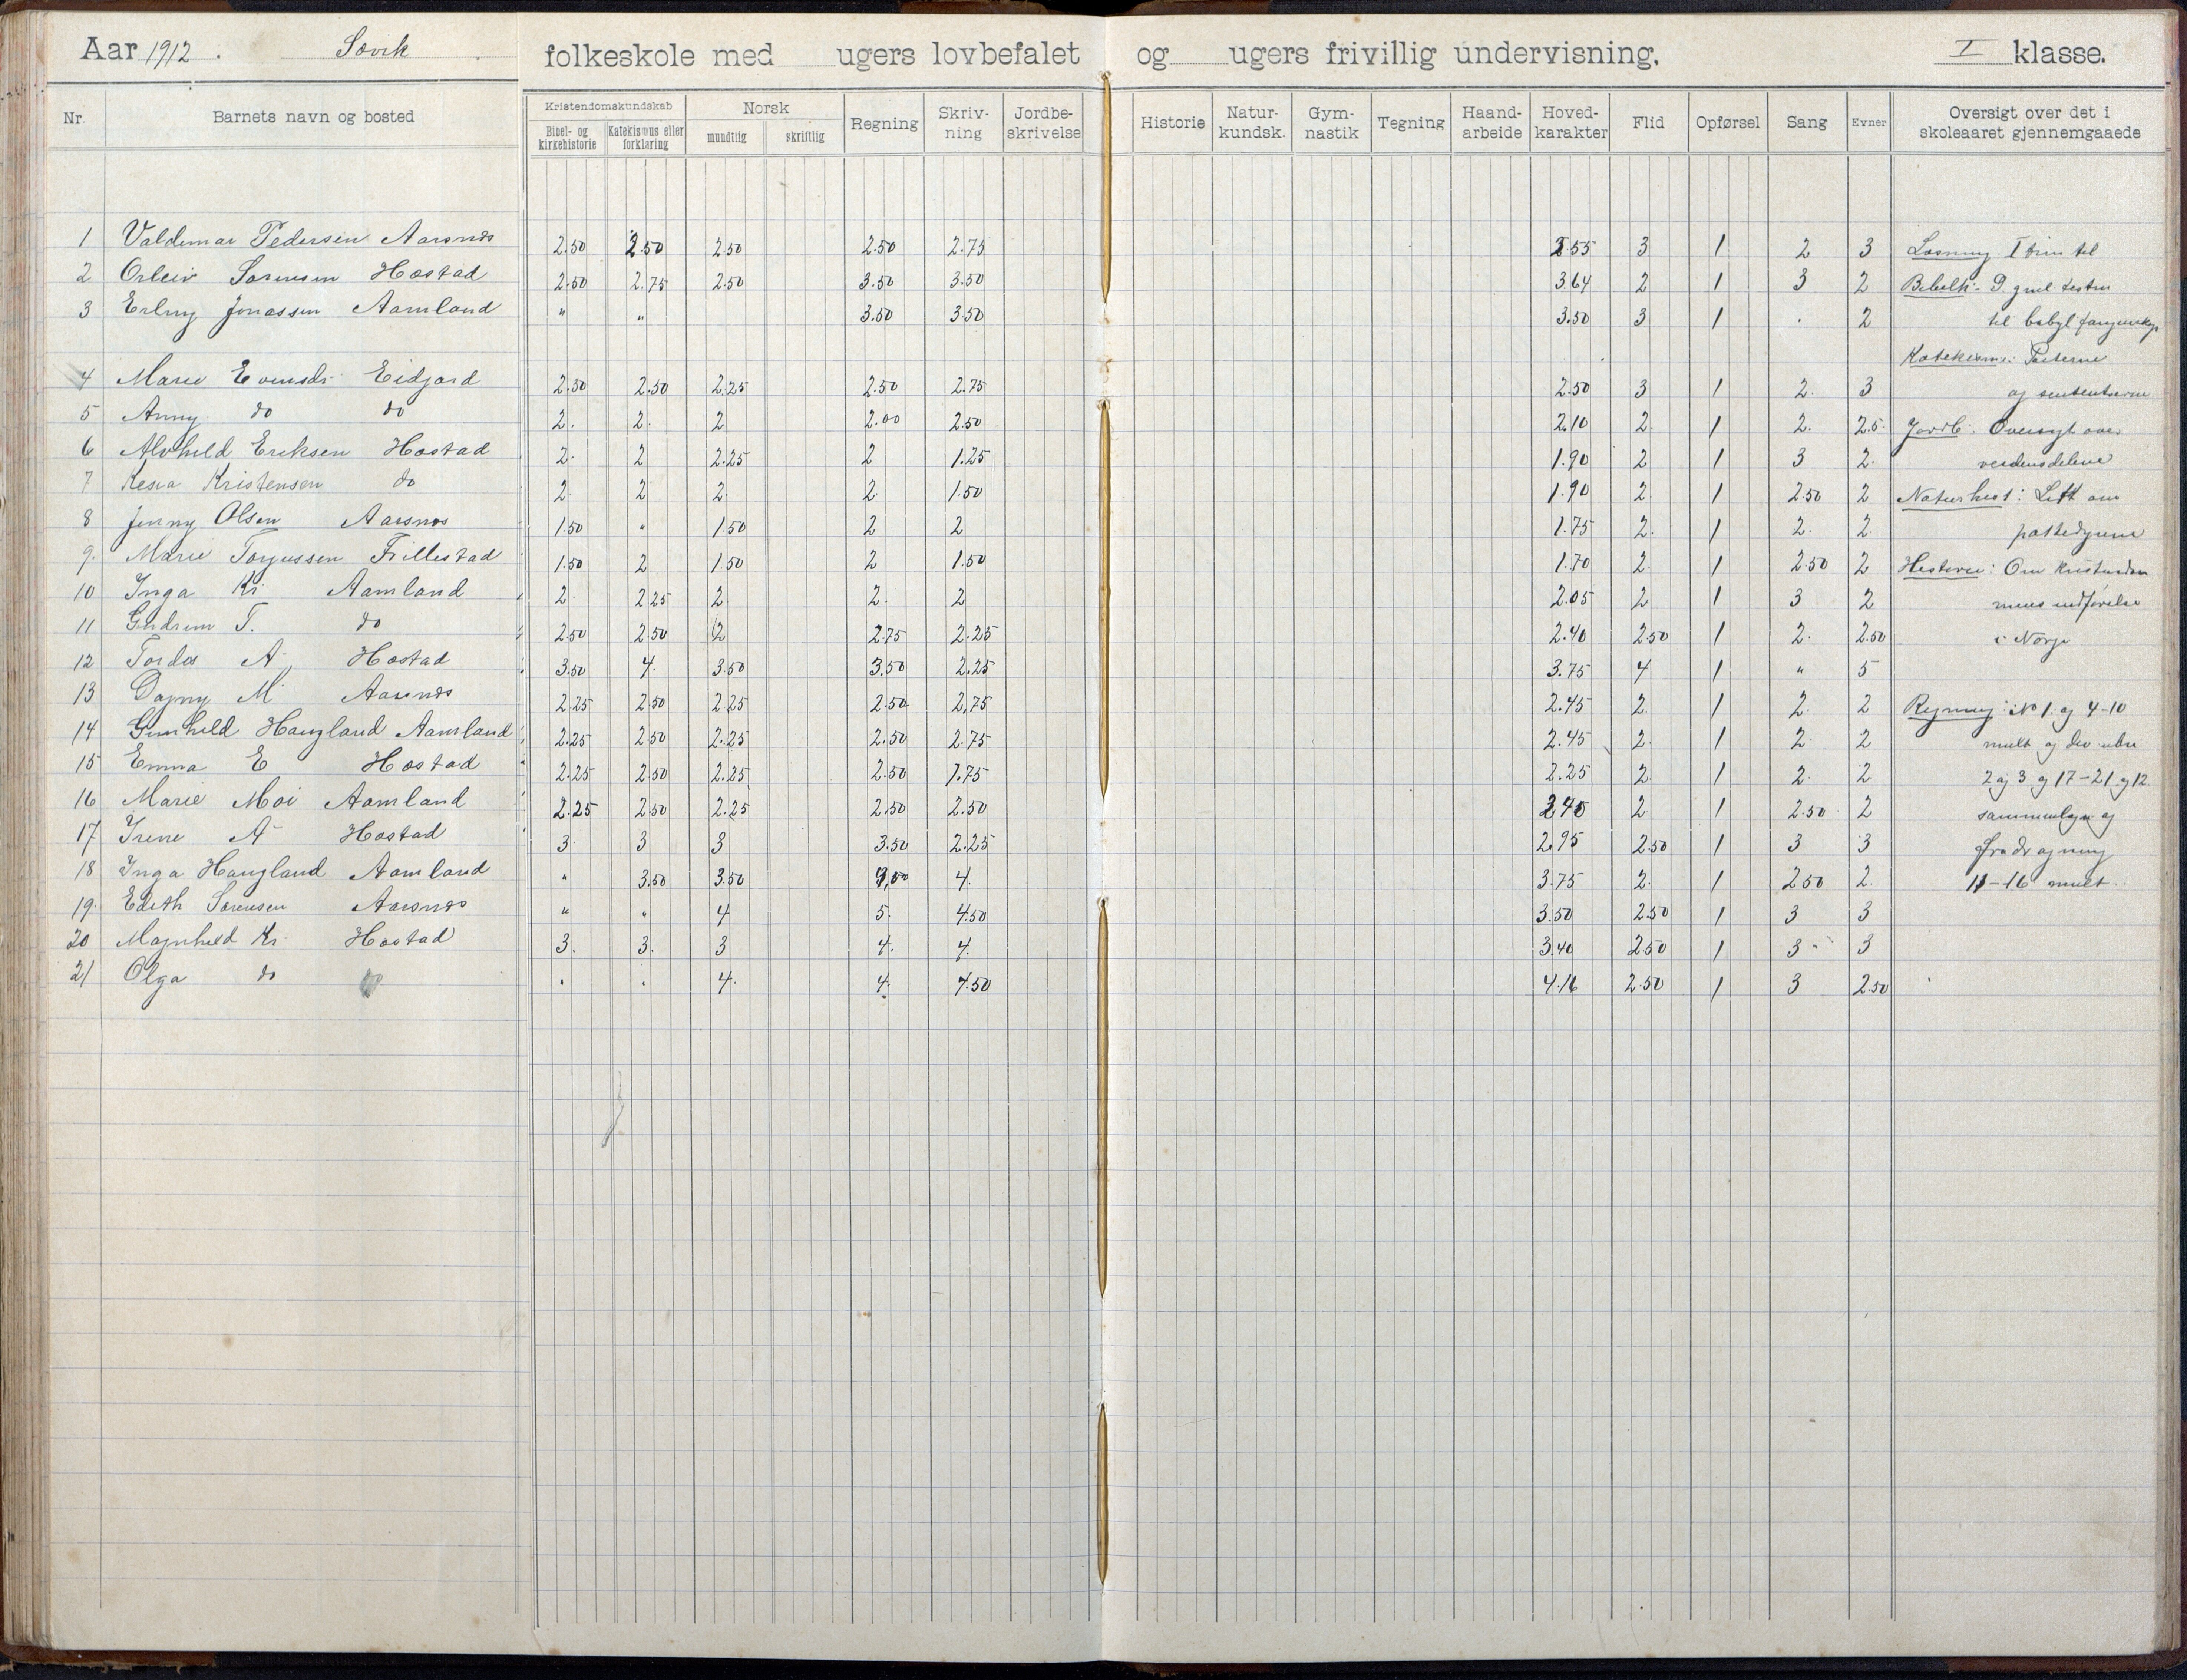 Aar 1912. Søvik folkeskole med ugers lovbefalet og ugers frivillig undervisning. I klasse.
Nr. Barnets navn og bosted Kristendomskundskab Norsk Regning Skriv-ning Jordbe-skrivelse Historie Natur-kundsk. Gym-nastik Tegning Haand-arbeide Hoved-karakter Flid Opførsel Sang Evner Oversigt over det i skoleaaret gjennemgaaede
Bibel- og kirkehistorie Katekismus eller forklaring mundtlig skriftlig
1 Valdemar Pedersen Aarsnes 2.50 2.50 2.50 2.50 2.75 2.55 3 1 2 3 Læsning. I trin til
2 Sørensen Høstad 2.50 2.75 2.50 3.50 3.50 3.64 2 1 3 2 Bibelh:
3 Erling Jonassen Aamland " " 3.50 3.50 3.50 3 1 . 2 til babyl
Katekism: Parterne
4 Marie Evensdr Eidjord 2.50 2.50 2.25 2.50 2.75 2.50 3 1 2. 3 og
5 Anny do do 2. 2. 2 2.00 2.50 2.10 2. 1 2. 2.5 Jordb: Oversigt over
6 Alvhild Eriksen Høstad 2. 2 2.25 2 1.25 1.90 2 1 3 2. verdensdelene
7 Kristensen do 2 2 2. 2. 1.50 1.90 2. 1 2.50 2 Naturhist: Litt om
8 Jenny Olsen Aarsnes 1.50 " 1.50 2 2 1.75 2. 1 2. 2. pattedyrene
9. Marie Torjussen Frillestad 1.50 2 1.50 2 1.50 1.70 2. 1 2.50 2 Historie: Om kristendom
10 Inga Kr Aamland 2 2.25 2 2. 2 2.05 2 1 3 2 mens indførelse
11 Gudrun T. do 2.50 2.50 2 2.75 2.25 2.40 2.50 1 2. 2.50 i Norge
12 Tordis A. Høstad 3.50 4. 3.50 3.50 2.25 3.75 4 1 " 5
13 Dagny M. Aarsnes 2.25 2.50 2.25 2.50 2,75 2.45 2. 1 2. 2 Regning: No 1. og 4-10
14 Gunhild Haugland Aamland 2.25 2.50 2.25 2.50 2.75 2.45 2. 1 2. 2 mult og div
15 Emma E Høstad 2.25 2.50 2.25 2.50 1.75 2.25 2. 1 2. 2 2 og 3 og 17-21 og 12
16 Marie Moi Aamland 2.25 2.50 2.25 2.50 2.50 2.40 2 1 2.50 2 sammenlægn og
17 Irene A Høstad 3 3 3 3.50 2.25 2.95 2.50 1 3 3 fradragning
18 Inga Haugland Aamland " 3.50 3.50 4.00 4. 3.75 2. 1 2.50 2. 11-16 mult.
19. Edith Sørensen Aarsnes " " 4 5. 4.50 3.50 2.50 1 3 3
20 Magnhild Kr. Høstad 3. 3. 3 4. 4. 3.40 2.50 1 3 3
21 Olga do do " " 4. 4. 4.50 4.16 2.50 1 3 2.50